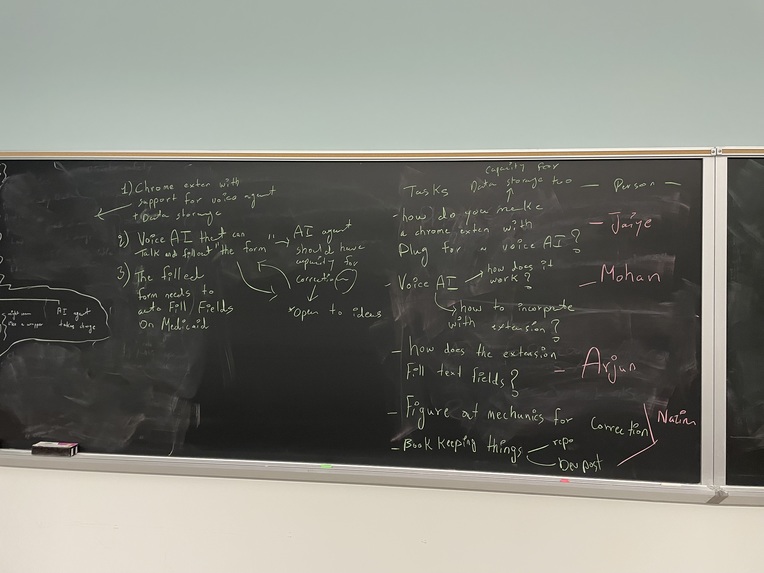 1) Chrome exten with
support for voice agent
+ Data storage
2) Voice AI that can
talk and fillout "the form"
AI agent
should have
capacity for
correction
*Open to ideas
3) The filled
form needs to
auto Fill Fields
On Medicaid
AI agent
taking charge
Tasks
capacity for
Data storage too
— Person —
- how do you make
a chrome exten with
Plug for a voice AI?
— Jaiye
- Voice AI
how does it
work?
how to incorporate
with extension?
— Mohan
- how does the extension
Fill text fields?
— Arjun
- Figure out mechanics for
correction
- Book keeping things
repo
Devpost